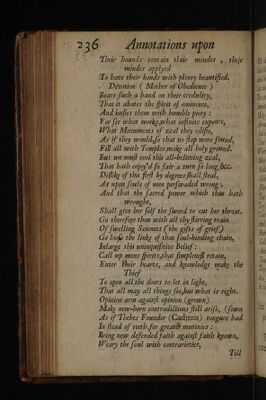 236 Annotations upon
Their bounds contain their mindes, their
mindes applyed
To have their bonds with plenty beautified.
Devotion (Mother of Obedience)
Bears such a hand on their credulity,
That it abates the spirit of eminence,
And busies them with humble piety:
For see what works, what infinite expence,
What Monuments of zeal they edifie,
As if they would, so that no stop were found,
Fill all with Temples, make all holy ground.
But we must cool this all-believing zeal,
That hath enjoy'd so fair a turn so long, &c.
Dislike of this first by degrees shall steal,
As upon souls of men perswaded wrong,
And that the sacred power which thus hath
wrought,
Shall give her self the sword to cut her throat.
Go therefore thou with all thy stirring train
Of swelling Sciences (the gifts of grief)
Go loose the links of that soul-binding chain,
Inlarge this uninquisitive Belief:
Call up mens spirits, that simpleness retain,
Enter their hearts, and knowledge make the
Thief
To open all the doors to let in light,
That all may all things see, but what is right.
Opinion arm against opinion (grown)
Make new-born contradictions still arise,
As if Thebes Founder (Cadmus) tongues had (sown
In stead of teeth, for greater mutinies:
Bring new defended faith against faith known,
Weary the soul with contrarieties,
Till